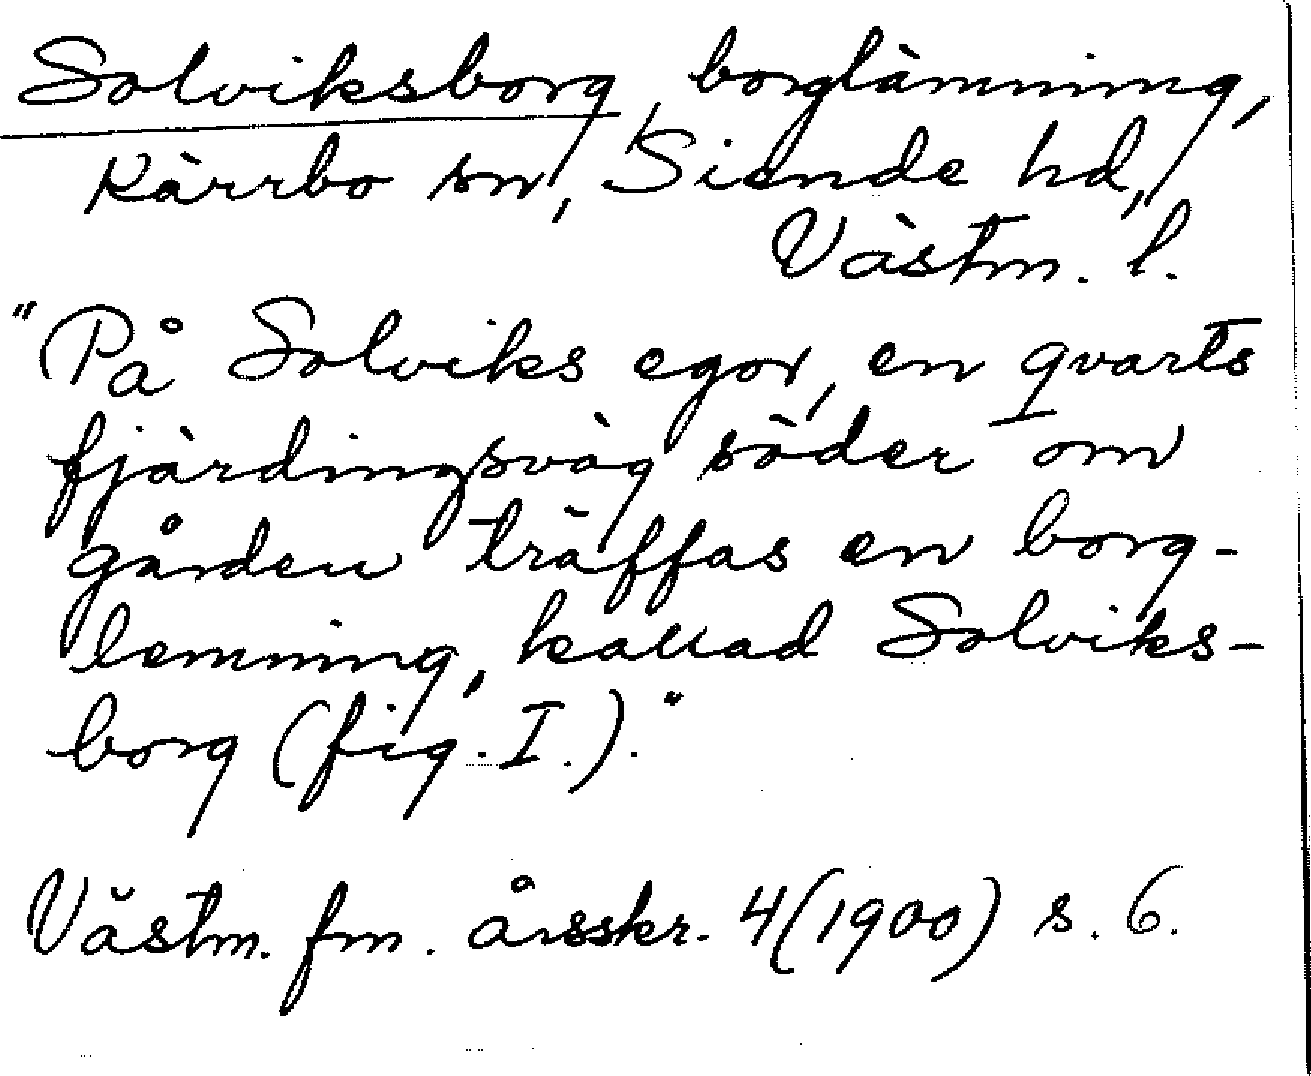 Solviksborg, borglämning,
Kärrbo sn, Siende hd,
Västm. l.
"På Solviks egor, en qvarts
fjärdingsväg söder om
gården träffas en borg-
lemning, kallad Solviks-
borg (fig. I.)."
Västm. fm. årsskr. 4(1900) s. 6.